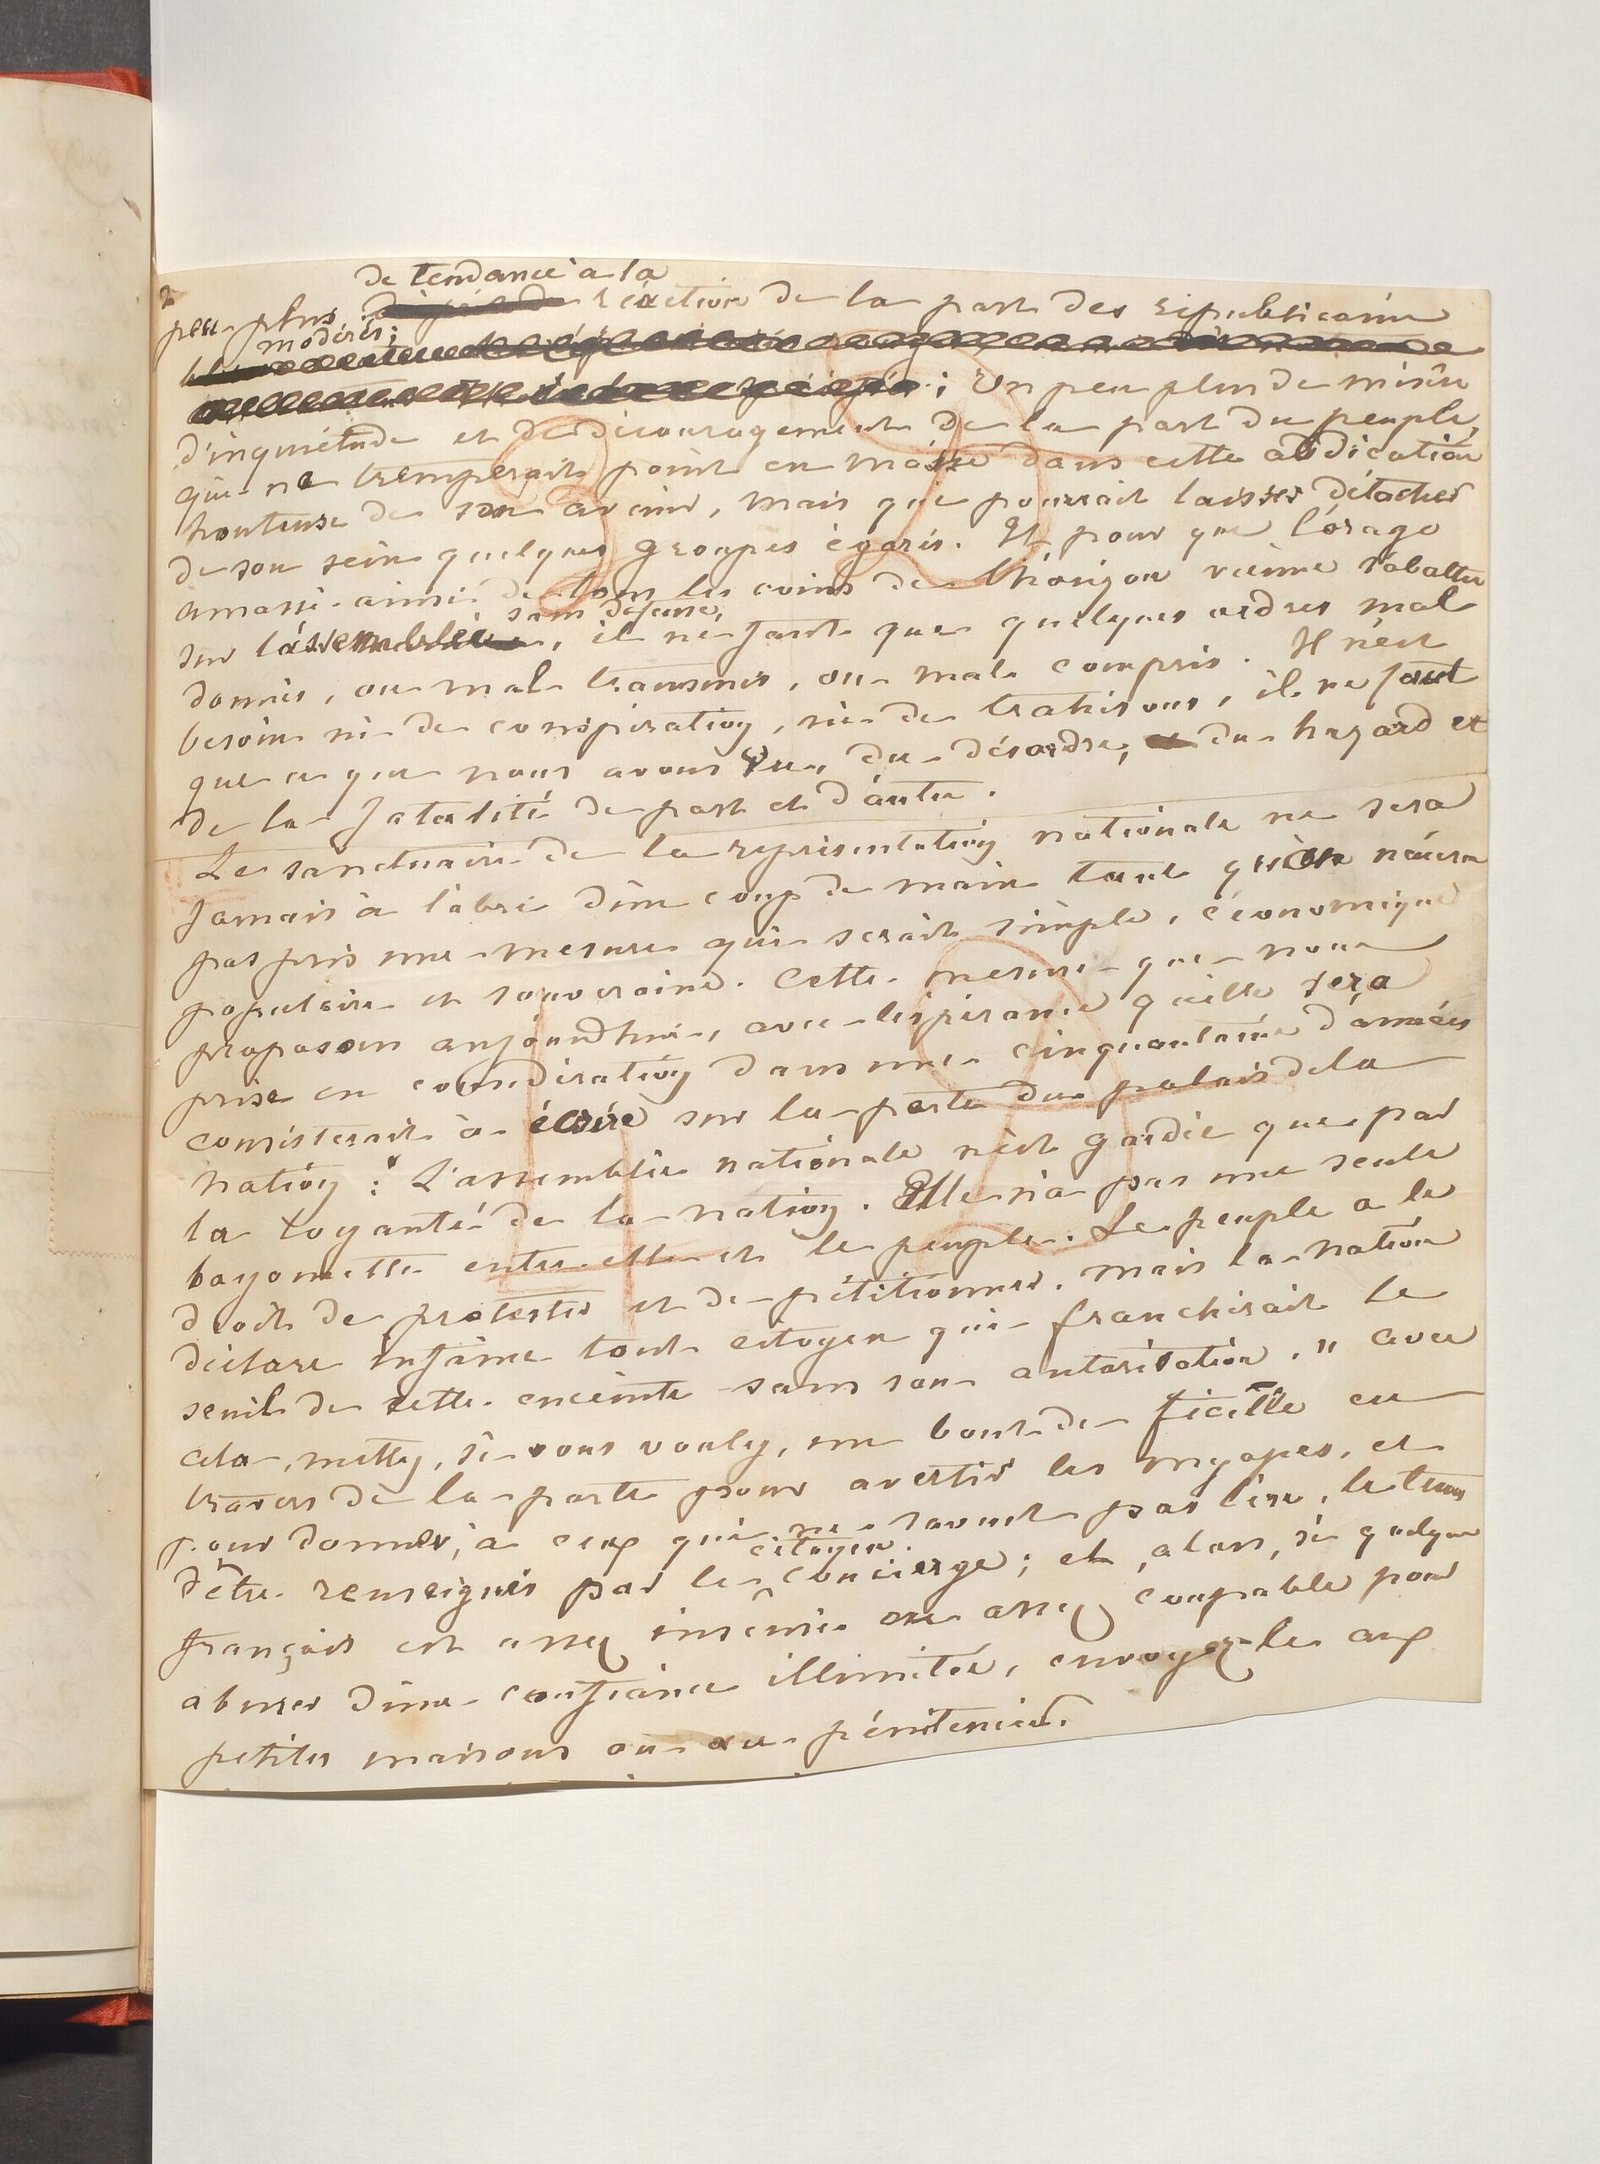 de tendance à la
peu plus réaction de la part des républicains
modérés;
; Un peu plus de misère
d'inquiétude et de découragement de la part du peuple,
qui ne tremperait point en masse dans cette abdication
honteuse de son avenir, mais qui pourrait laisser détacher
de son sein quelques groupes égarés. Et, pour que l'orage
amassé ainsi de tous les coins de l'horizon vienne s'abattre
sans défense,
sur l'assemblée, il ne faut que quelques ordres mal
donnés, ou mal transmis, ou mal compris. Il n'est
besoin ni de conspiration, ni de trahisons, il ne faut
que ce que nous avons vu, du désordre, du hazard et
de la fatalité de part et d'autre.
Le sanctuaire de la représentation nationale ne sera
jamais à l'abri d'un coup de main tant qu'on n'aura
pas pris une mesure qui serait simple, économique
populaire et souveraine. Cette mesure que nous
proposons aujourd'hui, avec l'espérance qu'elle sera
prise en considération dans une cinquantaine d'années
consisterait à écrire sur la porte du palais de la
nation : "L'assemblée nationale n'est gardée que par
la loyauté de la nation. Elle n'a pas une seule
bayonnette entre elle et le peuple. Le peuple a le
droit de protester et de pétitionner. mais la nation
déclare infâme tout citoyen qui franchirait le
seuil de cette enceinte sans son autorisation." avec
cela, mettez, si vous voulez, un bout de ficelle en
travers de la porte pour avertir les myopes, et
pour donner, à ceux qui ne savent pas lire, le tems
citoyen
d'être renseignés par le concierge; et, alors, si quelque
français est assez insensé ou assez coupable pour
abuser d'une confiance illimitée, envoyez-le aux
petites maisons ou au pénitencier.